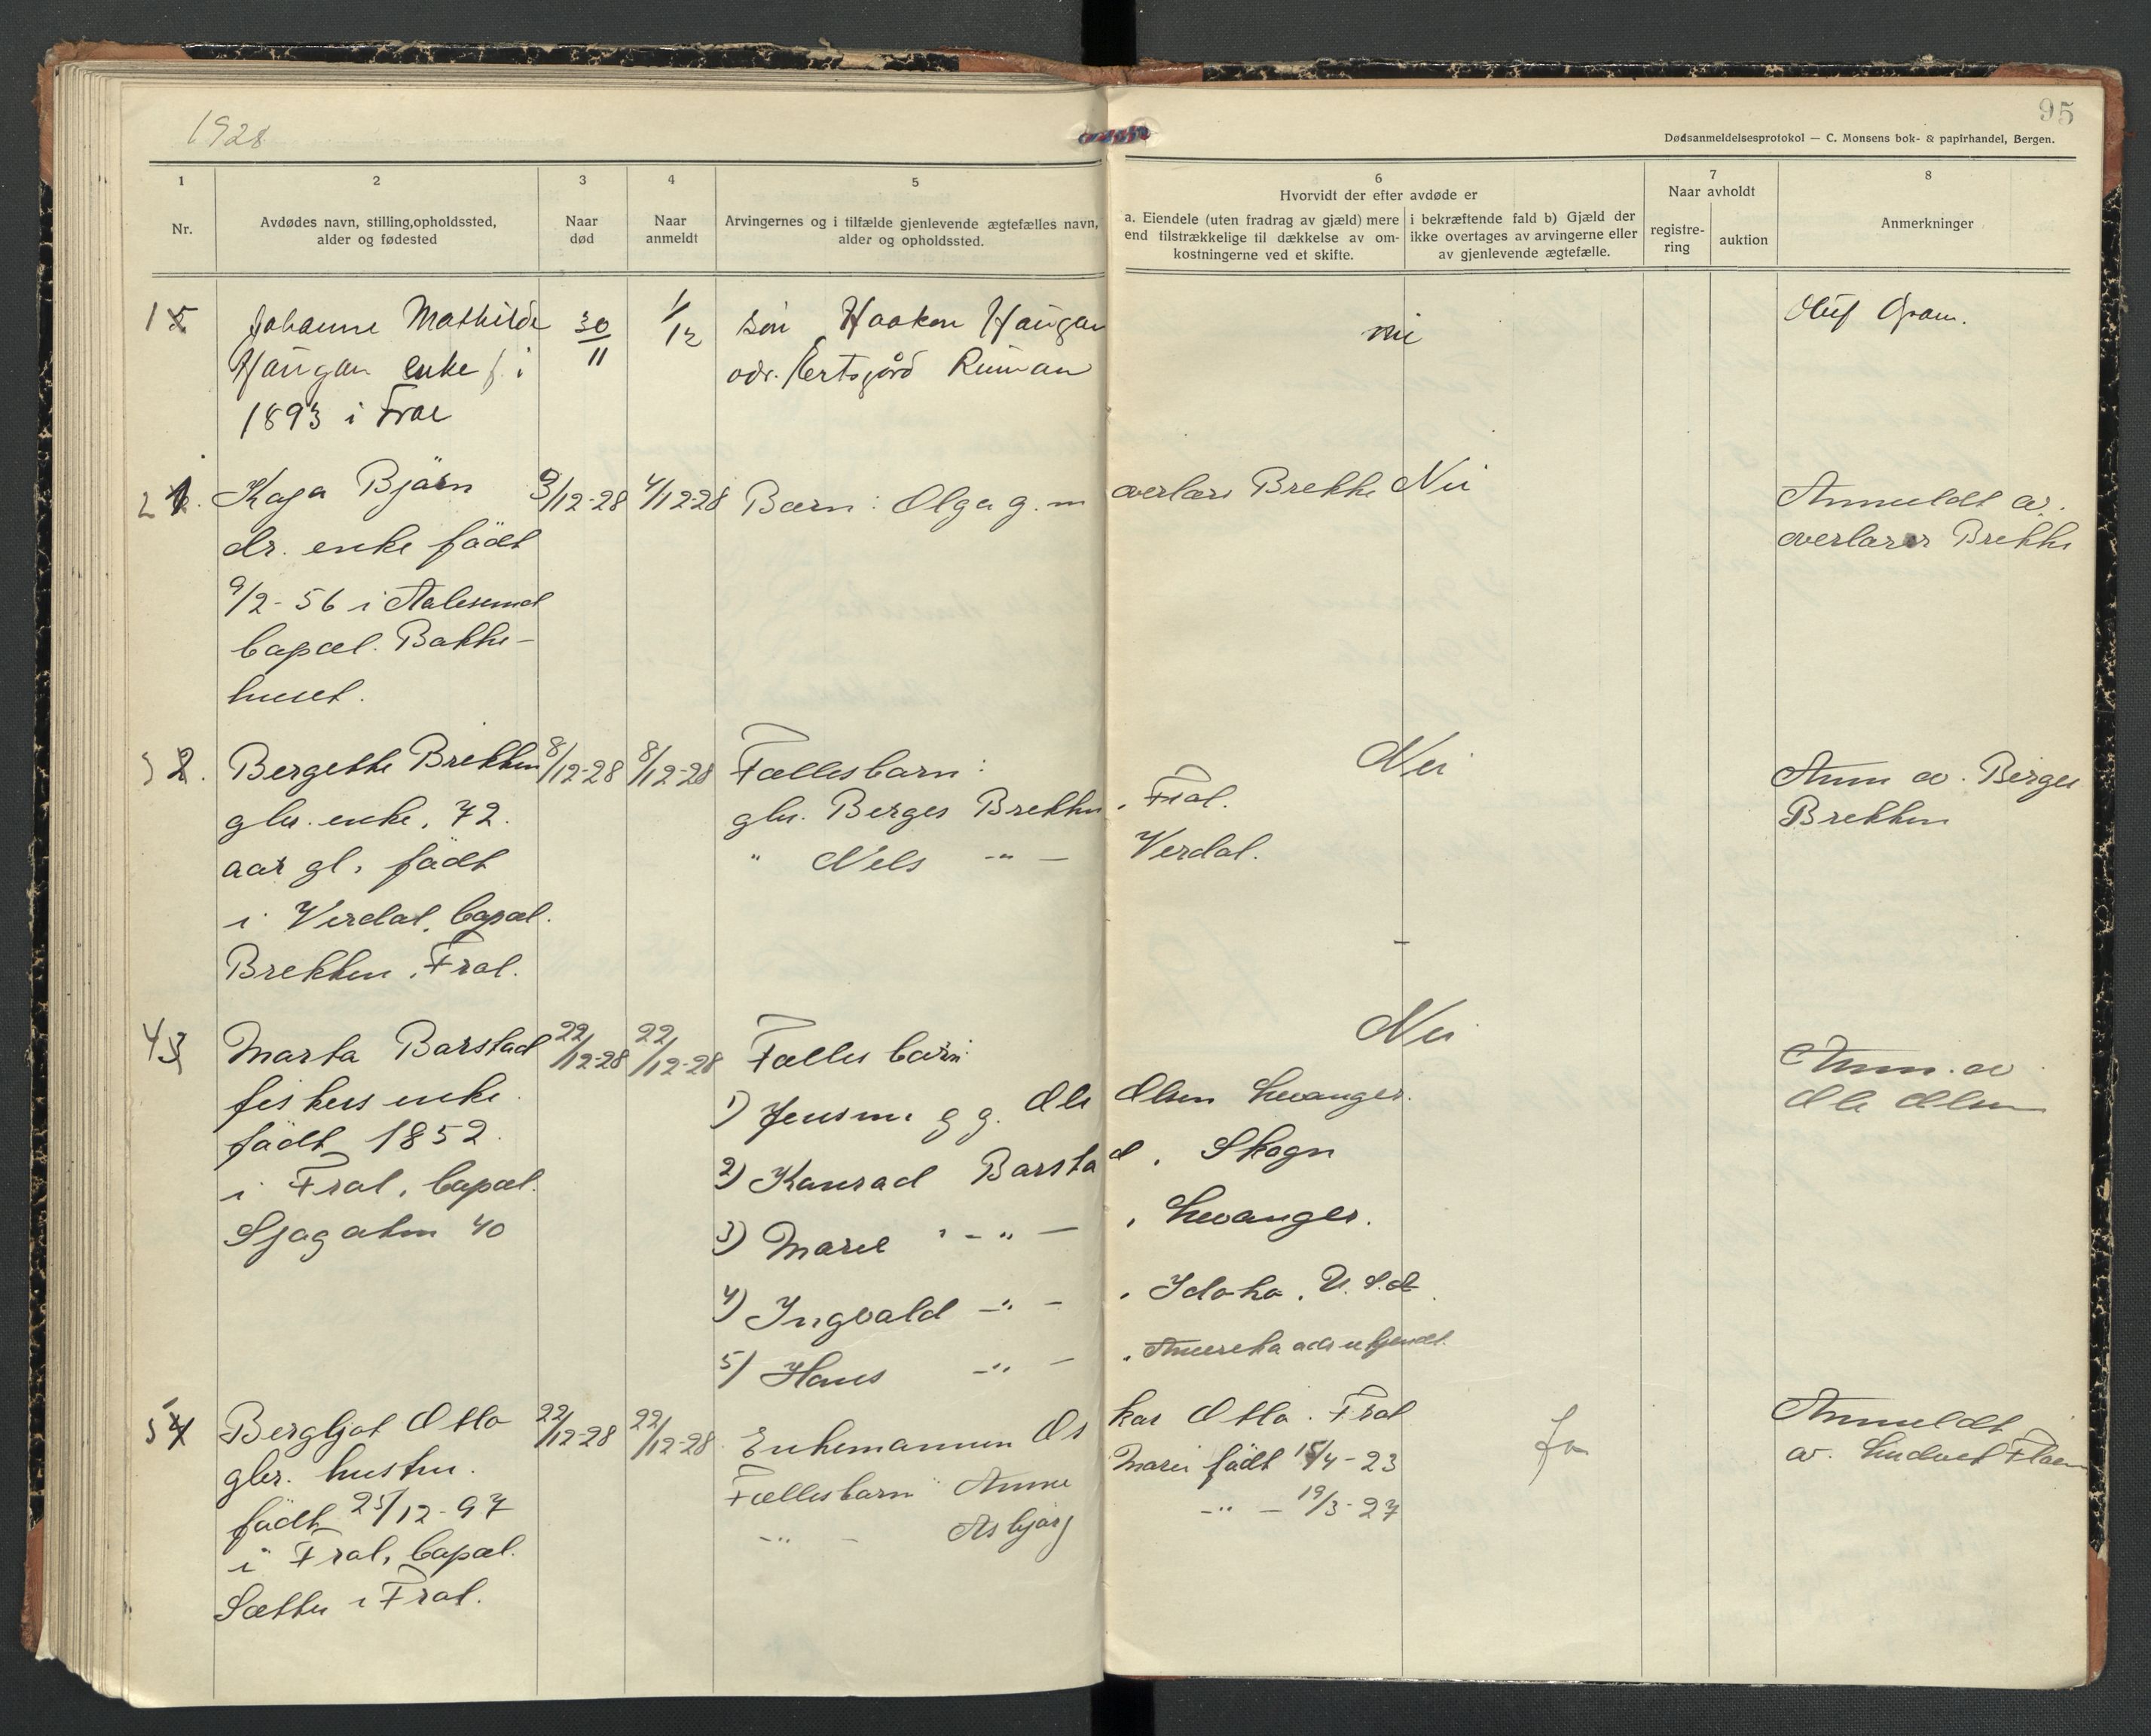 1928
95
Dødsanmeldelsesprotokol — C. Monsens bok- & papirhandel, Bergen.
1
2
3
4
5
6
7
8
Nr.
Avdødes navn, stilling, opholdssted,
alder og fødested
Naar
død
Naar
anmeldt
Arvingernes og i tilfælde gjenlevende ægtefælles navn,
alder og opholdssted.
Hvorvidt der efter avdøde er
a. Eiendele (uten fradrag av gjæld) mere
end tilstrækkelige til dækkelse av om-
kostningerne ved et skifte.
i bekræftende fald b) Gjæld der
ikke overtages av arvingerne eller
av gjenlevende ægtefælle.
Naar avholdt
registre-
ring
auktion
Anmerkninger
1
Johanne Mathilde
Haugan enke f. i
1893 i Frol
30/11
1/12
Søn Haakon Haugan
adr.
nei
Oluf Gram.
2
Kaja Bjørn
dr. enke född
9/2-56 i Aalesund
bopæl. Bakke-
huset.
3/12-28
4/12-28
Barn: Olga g. m overlærer Brekke
Nei
Anmeldt av.
overlærer Brekke
3
Bergette Brekken
gbr. enke, 72.
aar gl. född
i Verdal, bopæl.
Brekken, Frol.
8/12-28
8/12-28
Fællesbarn:
gbr. Berges Brekken, Frol.
" Nels -"- Verdal.
Nei
Anm av. Berges
Brekken
4
Marta Barstad
fiskers enke.
född 1852.
i Frol, bopæl.
Sjøgaten 40
22/12-28
22/12-28
Fælles barn:
1) Jensine g. Ole Olsen Levanger.
2) Konrad Barstad, Skogn
3) Marie -"-, Levanger.
4) Ingvald -"-, Idaho, U.S.A.
5) Hans -"-, Amerika adr ukjendt.
Nei
Anm. av
Ole Olsen
5
Bergljot Otlo
gbr. hustru.
född 25/12-97
i Frol, bopæl.
i Frol.
22/12-28
22/12-28
Enkemannen Oskar Otlo. Frol
Fællesbarn Anne Marie född 15/4-23
-"- Asbjørg -"- 19/3-27
Ja
Anmeldt
av.